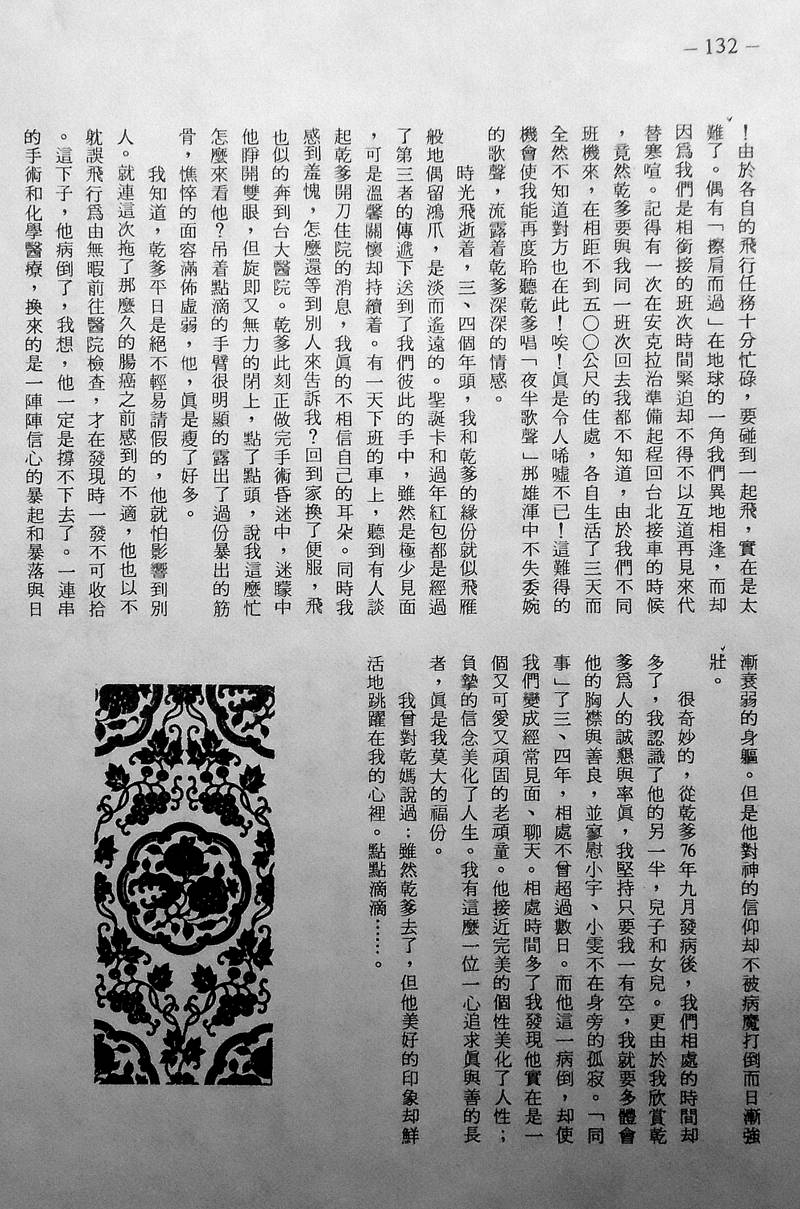 — 132 —
！由於各自的飛行任務十分忙碌，要碰到一起飛，實在是太
難了。偶有「擦肩而過」在地球的一角我們異地相逢，而却
因爲我們是相銜接的班次時間緊迫却不得不以互道再見來代
替寒暄。記得有一次在安克拉治準備起程回台北接車的時候
，竟然乾爹要與我同一班次回去我都不知道，由於我們不同
班機來，在相距不到五〇〇公尺的住處，各自生活了三天而
全然不知道對方也在此！唉！眞是令人唏噓不已！這難得的
機會使我能再度聆聽乾爹唱「夜半歌聲」那雄渾中不失委婉
的歌聲，流露着乾爹深深的情感。
時光飛逝着，三、四個年頭，我和乾爹的緣份就似飛雁
般地偶留鴻爪，是淡而遙遠的。聖誕卡和過年紅包都是經過
了第三者的傳遞下送到了我們彼此的手中，雖然是極少見面
，可是溫馨關懷却持續着。有一天下班的車上，聽到有人談
起乾爹開刀住院的消息，我眞的不相信自己的耳朶。同時我
感到羞愧，怎麼還等到別人來告訴我？回到家換了便服，飛
也似的奔到台大醫院。乾爹此刻正做完手術昏迷中，迷矇中
他睜開雙眼，但旋即又無力的閉上，點了點頭，說我這麼忙
怎麼來看他？吊着點滴的手臂很明顯的露出了過份暴出的筋
骨，憔悴的面容滿佈虛弱，他，眞是瘦了好多。
我知道，乾爹平日是絕不輕易請假的，他就怕影響到別
人。就連這次拖了那麼久的腸癌之前感到的不適，他也以不
躭誤飛行爲由無暇前往醫院檢查，才在發現時一發不可收拾
。這下子，他病倒了，我想，他一定是撐不下去了。一連串
的手術和化學醫療，換來的是一陣陣信心的暴起和暴落與日
漸衰弱的身軀。但是他對神的信仰却不被病魔打倒而日漸強
壯。
很奇妙的，從乾爹76年九月發病後，我們相處的時間却
多了，我認識了他的另一半，兒子和女兒。更由於我欣賞乾
爹爲人的誠懇與率眞，我堅持只要我一有空，我就要多體會
他的胸襟與善良，並寥慰小宇、小雯不在身旁的孤寂。「同
事」了三、四年，相處不曾超過數日。而他這一病倒，却使
我們變成經常見面、聊天。相處時間多了我發現他實在是一
個又可愛又頑固的老頑童。他接近完美的個性美化了人性；
負摯的信念美化了人生。我有這麼一位一心追求眞與善的長
者，眞是我莫大的福份。
我曾對乾媽說過：雖然乾爹去了，但他美好的印象却鮮
活地跳躍在我的心裡。點點滴滴……。